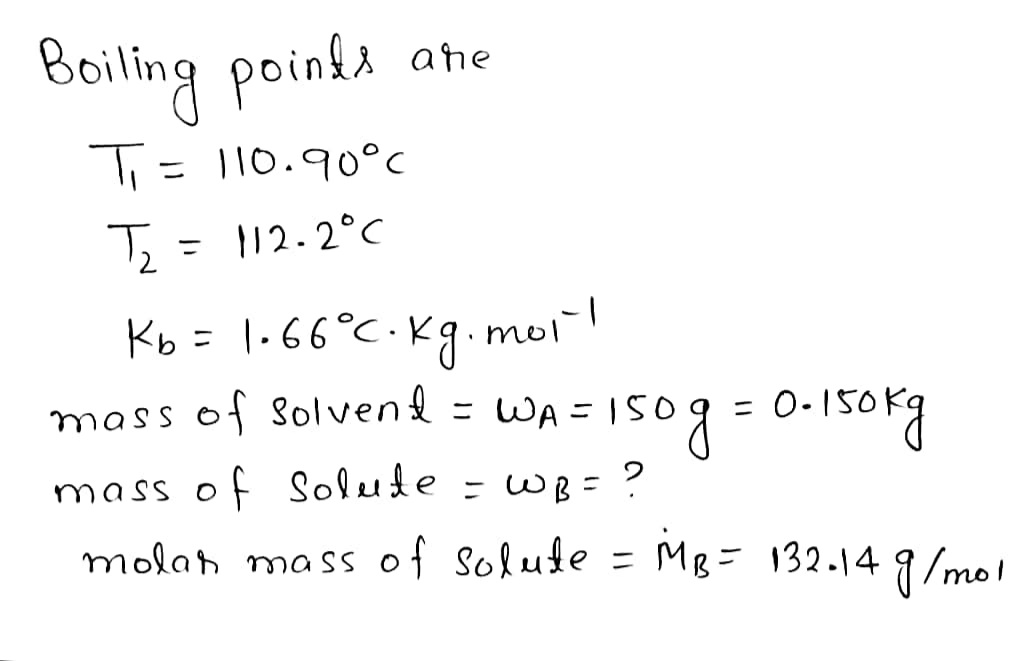 Boiling points are
T₁ = 110.90°C
T₂ = 112.2°C
Kb = 1.66°C.Kg.mol⁻¹
mass of Solvent = WA = 150g = 0.150Kg
mass of Solute = WB = ?
molar mass of Solute = MB = 132.14 g/mol